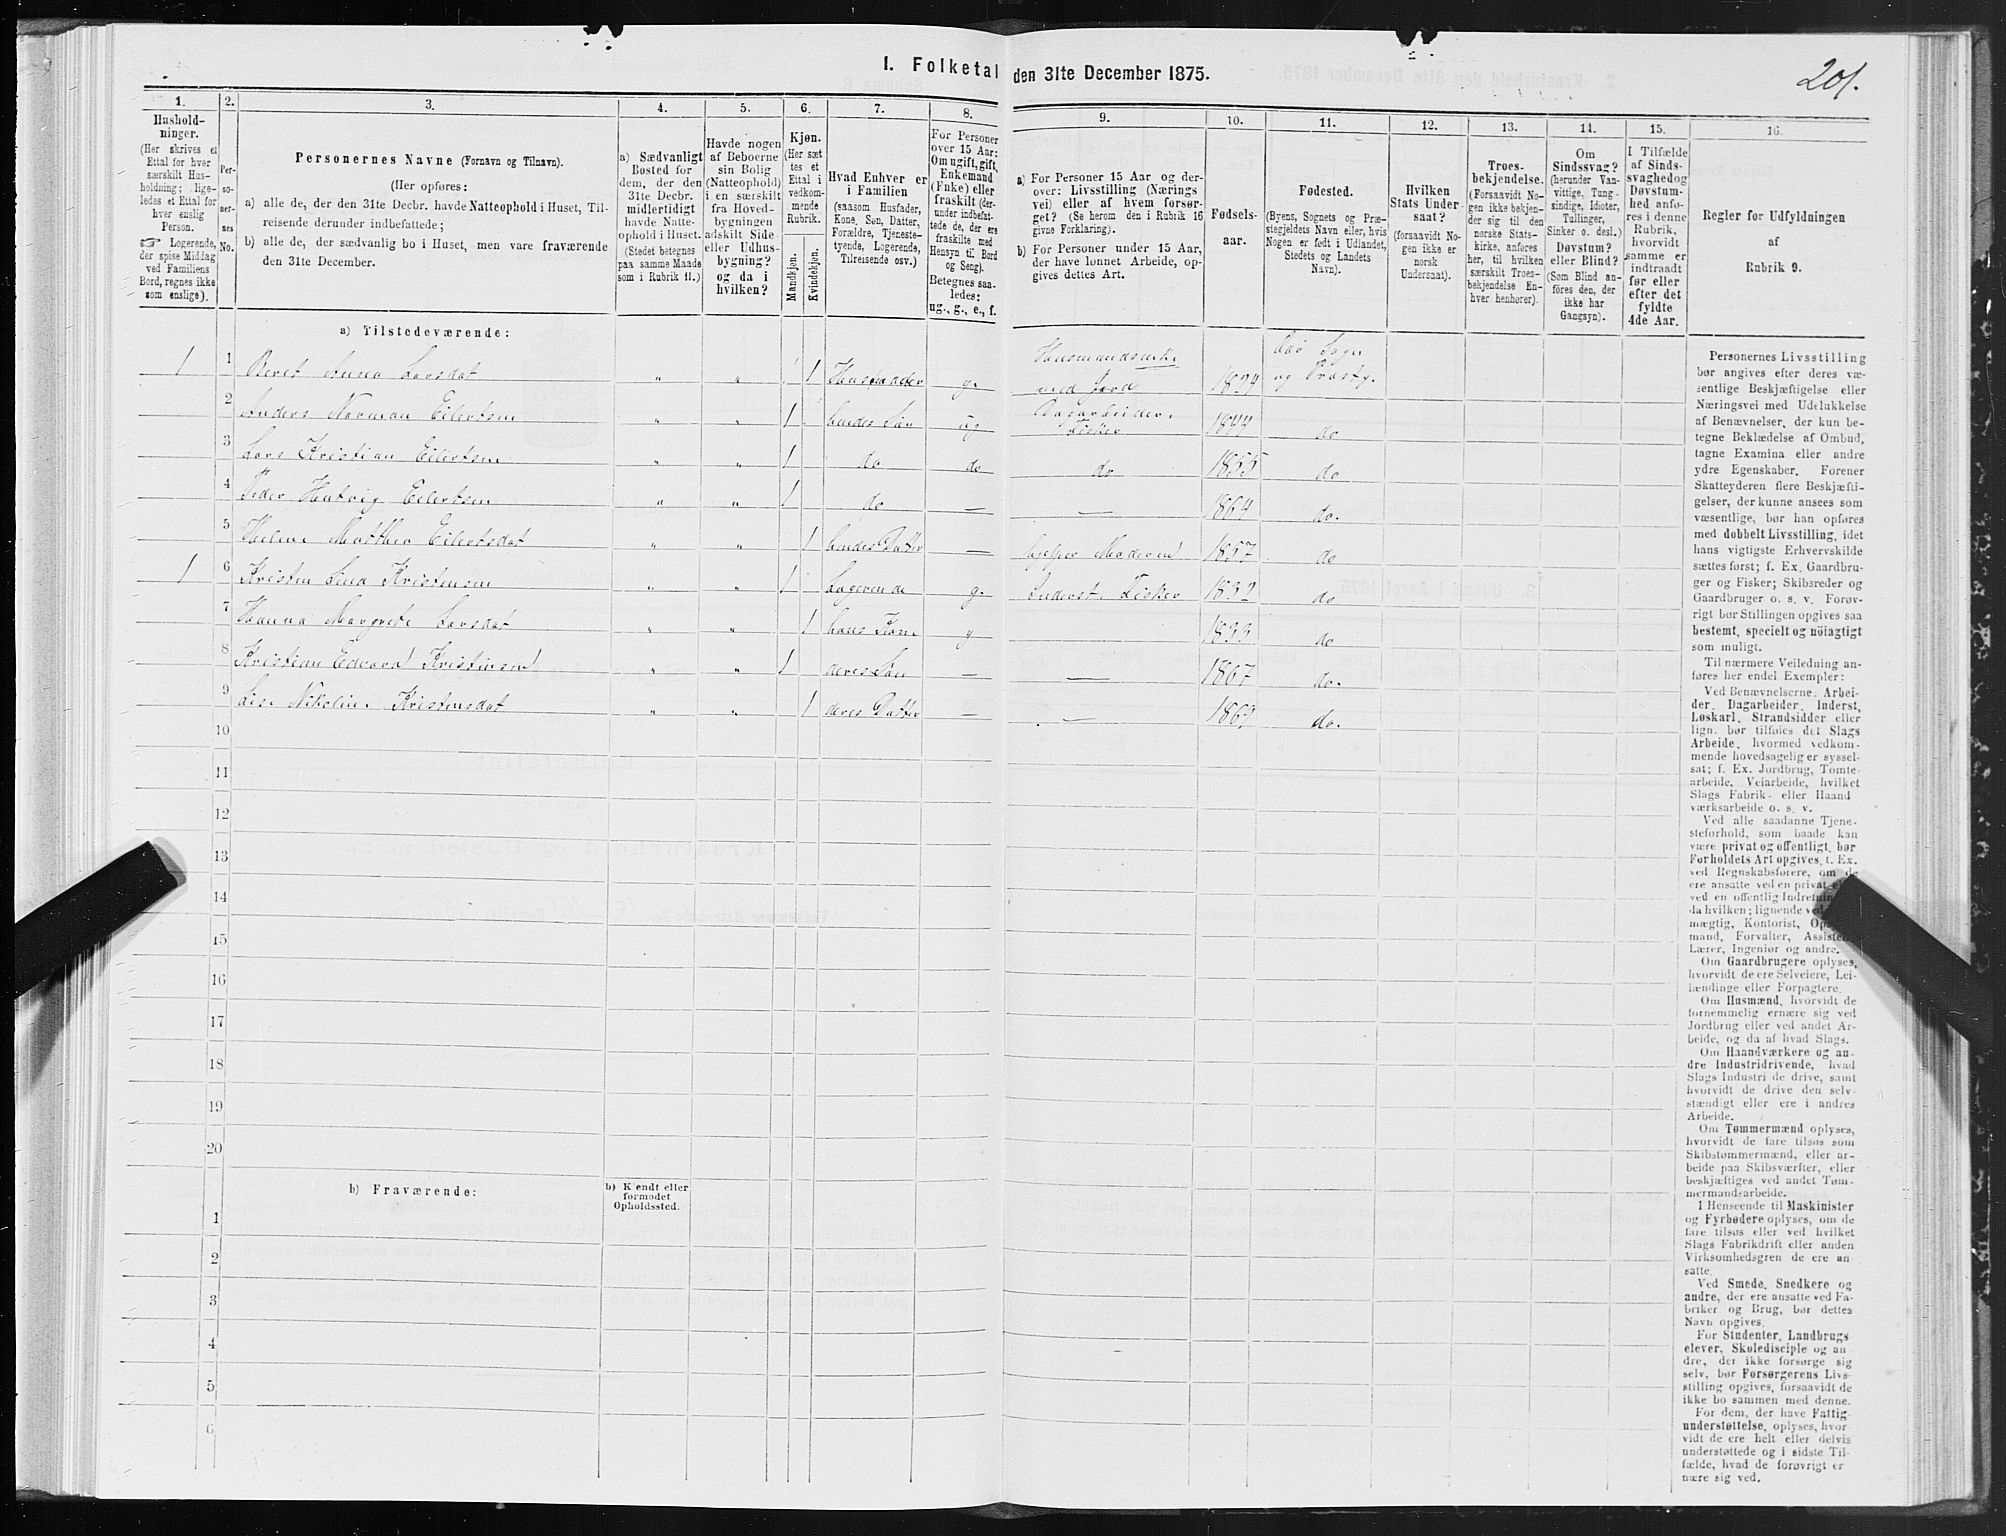 I. Folketal den 31te December 1875.
201.
1.
Hushold-
ninger.
(Her skrives et
Ettal for hver
særskilt Hus-
holdning; lige-
ledes et Ettal for
hver enslig
Person.
☞ Logerende,
der spise Middag
ved Familiens
Bord, regnes ikke
som enslige).
2.
Per-
so-
ner-
nes
No.
3.
Personernes Navne (Fornavn og Tilnavn).
(Her opføres:
a) alle de, der den 31te Decbr. havde Natteophold i Huset, Til-
reisende derunder indbefattede;
b) alle de, der sædvanlig bo i Huset, men vare fraværende
den 31te December.
4.
a) Sædvanligt
Bosted for
dem, der den
31te Decbr.
midlertidigt
havde Natte-
ophold i Huset.
(Stedet betegnes
paa samme Maade
som i Rubrik 11.)
5.
Havde nogen
af Beboerne
sin Bolig
(Natteophold)
i en særskilt
fra Hoved-
bygningen
adskilt Side-
eller Udhus-
bygning?
og da i
hvilken?
6.
Kjøn.
(Her sæt
tes et
Ettal i
vedkom-
mende
Rubrik.
Mandkjøn.
Kvindekjøn.
7.
Hvad Enhver er
i Familien
(saasom Husfader,
Kone, Søn, Datter,
Forældre, Tjeneste-
tyende, Logerende,
Tilreisende osv.)
8.
For Personer
over 15 Aar:
Om ugift, gift,
Enkemand
(Enke) eller
fraskilt (der-
under indbefat-
tede de, der ere
fraskilte med
Hensyn til Bord
og Seng).
Betegnes saa-
ledes:
ug., g., e., f.
9.
a) For Personer 15 Aar og der-
over: Livsstilling (Nærings
vei) eller af hvem forsør-
get? (Se herom den i Rubrik 16
givne Forklaring).
b) For Personer under 15 Aar,
der have lønnet Arbeide, op-
gives dettes Art.
10.
Fødsels-
aar.
11.
Fødested.
(Byens, Sognets og Præ-
stegjeldets Navn eller, hvis
Nogen er født i Udlandet,
Stedets og Landets
Navn).
12.
Hvilken
Stats Under-
saat?
(forsaavidt No-
gen ikke er
norsk
Undersaat).
13.
Troes-
bekjendelse.
(Forsaavidt No-
gen ikke bekjen-
der sig til den
norske Stats-
kirke, anføres
her, til hvilken
særskilt Troes-
bekjendelse En-
hver henhører).
14.
Om
Sindssvag?
(herunder Van-
vittige, Tung-
sindige, Idioter,
Tullinger,
Sinker o. desl.)
Døvstum?
eller Blind?
(Som Blind an-
føres den, der
ikke har
Gangsyn).
15.
I Tilfælde
af Sinds-
svaghed og
Døvstum-
hed anfø-
res i denne
Rubrik,
hvorvidt
samme er
indtraadt
før eller
efter det
fyldte
4de Aar.
16.
Regler for Udfyldningen
af
Rubrik 9.
a) Tilstedeværende:
1 1 Beret Anna Larsdat " " 1 Husmoder g. Husmandsenk. med Jord 1824 Sogn og Præstg.
2 Anders Norman Eilertsen " " 1 hendes Søn ug Dagarbeider. Fisker 1844 do
3 Lars Kristian Eilertsen " " 1 do do do 1855 do
4 Peder Hartvig Eilertsen " " 1 do — — 1864 do.
5 Helene Matthea Eilertsdat " " 1 hendes Datter — hjelper Moderen 1857 do
1 6 Kristen Kristensen " " 1 Logerende g. Inderst. Fisker 1832 do
7 Hanna Margrete Larsdat " " 1 hans Kone g 1833 do
8 Kristian Edvard Kristensen " " 1 deres Søn — — 1867 do.
9 Lise Nikoline Kristensdat " " 1 deres Datter — — 1869 do.
10
11
12
13
14
15
16
17
18
19
20
b) Fraværende:
b) Kjendt eller
formodet
Opholdssted.
1
2
3
4
5
6
Personernes Livsstilling
bør angives efter deres væ-
sentlige Beskjæftigelse eller
Næringsvei med Udelukkelse
af Benævnelser, der kun be-
tegne Beklædelse af Ombud,
tagne Examina eller andre
ydre Egenskaber. Forener
Skatteyderen flere Beskjæfti-
gelser, der kunne ansees som
væsentlige, bør han opføres
med dobbelt Livsstilling, idet
hans vigtigste Erhvervskilde
sættes først; f. Ex. Gaardbru-
ger og Fisker; Skibsreder og
Gaardbruger o. s. v. Forøv-
rigt bør Stillingen opgives saa
bestemt, specielt og nöiagtigt
som muligt.
Til nærmere Veiledning an-
føres her endel Exempler:
Ved Benævnelserne: Arbei-
der, Dagarbeider, Inderst,
Løskarl, Strandsidder eller
lign. bør tilføies det Slags
Arbeide, hvormed vedkom-
mende hovedsagelig er syssel-
sat; f. Ex. Jordbrug, Tomte-
arbeide, Veiarbeide, hvilket
Slags Fabrik- eller Haand
værksarbeide o. s. v.
Ved alle saadanne Tjene-
steforhold, som baade kan
være privat og offentligt, bør
Forholdets Art opgives, f. Ex.
ved Regnskabsførere, om de
ere ansatte ved en privat
ved en offentlig
da hvilken; lignende
mægtig, Kontorist,
mand, Forvalter,
Lærer, Ingeniør og andre.
Om Gaardbrugere oplyses,
hvorvidt de ere Selveiere, Lei-
lændinge eller Forpagtere.
Om Husmænd, hvorvidt de
fornemmelig ernære sig ved
Jordbrug eller ved andet Ar-
beide, og da af hvad Slags.
Om Haandværkere og an-
dre Industridrivende, hvad
Slags Industri de drive, samt
hvorvidt de drive den selv-
stændigt eller ere i andres
Arbeide.
Om Tømmermænd oplyses,
hvorvidt de fare tilsøs som
Skibstømmermænd, eller ar-
beide paa Skibsværfter, eller
beskjæftiges ved andet Tøm-
mermandsarbeide.
I Henseende til Maskinister
og Fyrbødere oplyses, om de
fare tilsøs eller ved hvilket
Slags Fabrikdrift eller anden
Virksomhedsgren de ere an-
satte.
Ved Smede, Snedkere og
andre, der ere ansatte ved Fa-
briker og Brug, bør dettes
Navn opgives.
For Studenter, Landbrugs
elever, Skoledisciple og an
dre, der ikke forsørge sig
selv, bør Forsørgerens Livs-
stilling opgives, forsaavidt de
ikke bo sammen med denne.
For dem, der have Fattig-
understøttelse, oplyses, hvor-
vidt de ere helt eller delvis
understøttede og i sidste Til-
fælde, hvad de forøvrigt er
nære sig ved.